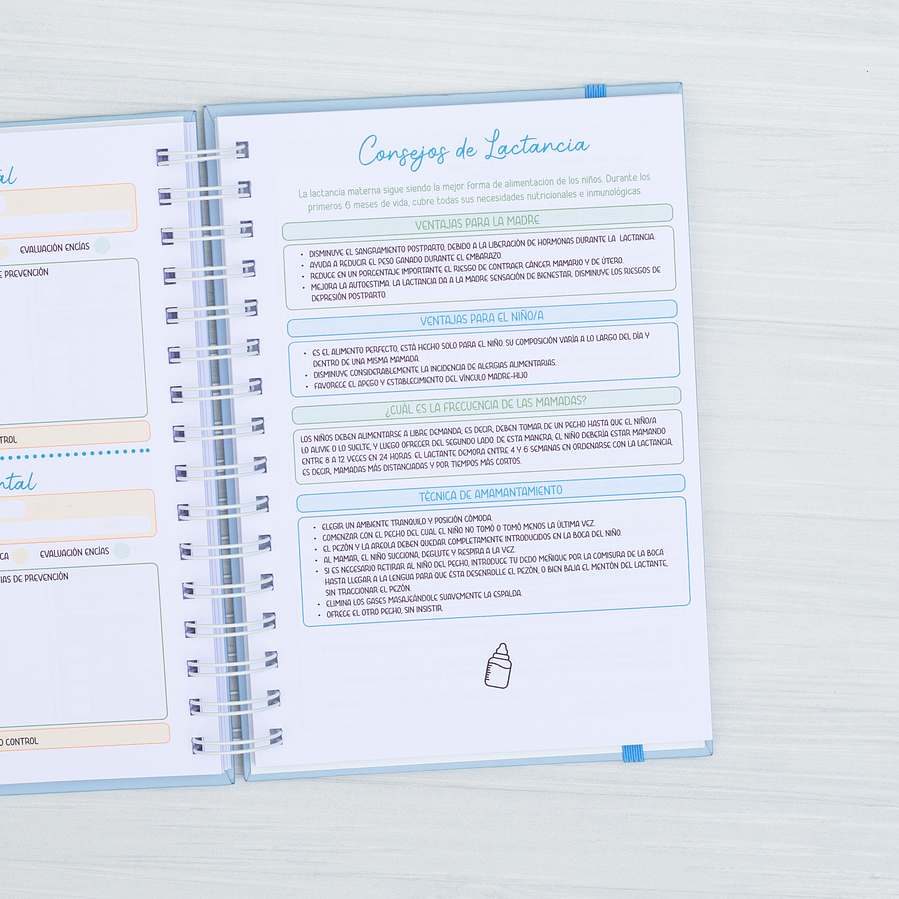 tal
EVALUACIÓN ENCÍAS
E PREVENCIÓN
TROL
ntal
CA
EVALUACIÓN ENCÍAS
IAS DE PREVENCIÓN
O CONTROL
Consejos de Lactancia
La lactancia materna sigue siendo la mejor forma de alimentación de los niños. Durante los
primeros 6 meses de vida, cubre todas sus necesidades nutricionales e inmunológicas.
VENTAJAS PARA LA MADRE
• DISMINUYE EL SANGRAMIENTO POSTPARTO, DEBIDO A LA LIBERACIÓN DE HORMONAS DURANTE LA LACTANCIA.
• AYUDA A REDUCIR EL PESO GANADO DURANTE EL EMBARAZO.
• REDUCE EN UN PORCENTAJE IMPORTANTE EL RIESGO DE CONTRAER CÁNCER MAMARIO Y DE ÚTERO.
• MEJORA LA AUTOESTIMA. LA LACTANCIA DA A LA MADRE SENSACIÓN DE BIENESTAR. DISMINUYE LOS RIESGOS DE
DEPRESIÓN POSTPARTO.
VENTAJAS PARA EL NIÑO/A
• ES EL ALIMENTO PERFECTO, ESTÁ HECHO SOLO PARA EL NIÑO. SU COMPOSICIÓN VARÍA A LO LARGO DEL DÍA Y
DENTRO DE UNA MISMA MAMADA.
• DISMINUYE CONSIDERABLEMENTE LA INCIDENCIA DE ALERGIAS ALIMENTARIAS.
• FAVORECE EL APEGO Y ESTABLECIMIENTO DEL VÍNCULO MADRE-HIJO
¿CUÁL ES LA FRECUENCIA DE LAS MAMADAS?
LOS NIÑOS DEBEN ALIMENTARSE A LIBRE DEMANDA, ES DECIR, DEBEN TOMAR DE UN PECHO HASTA QUE EL NIÑO/A
LO ALIVIE O LO SUELTE, Y LUEGO OFRECER DEL SEGUNDO LADO. DE ESTA MANERA, EL NIÑO DEBERÍA ESTAR MAMANDO
ENTRE 8 A 12 VECES EN 24 HORAS. EL LACTANTE DEMORA ENTRE 4 Y 6 SEMANAS EN ORDENARSE CON LA LACTANCIA,
ES DECIR, MAMADAS MÁS DISTANCIADAS Y POR TIEMPOS MÁS CORTOS.
TÉCNICA DE AMAMANTAMIENTO
• ELEGIR UN AMBIENTE TRANQUILO Y POSICIÓN CÓMODA.
• COMENZAR CON EL PECHO DEL CUAL EL NIÑO NO TOMÓ O TOMÓ MENOS LA ÚLTIMA VEZ.
• EL PEZÓN Y LA AREOLA DEBEN QUEDAR COMPLETAMENTE INTRODUCIDOS EN LA BOCA DEL NIÑO.
• AL MAMAR, EL NIÑO SUCCIONA, DEGLUTE Y RESPIRA A LA VEZ.
• SI ES NECESARIO RETIRAR AL NIÑO DEL PECHO, INTRODUCE TU DEDO MEÑIQUE POR LA COMISURA DE LA BOCA
HASTA LLEGAR A LA LENGUA PARA QUE ÉSTA DESENROLLE EL PEZÓN, O BIEN BAJA EL MENTÓN DEL LACTANTE,
SIN TRACCIONAR EL PEZÓN.
• ELIMINA LOS GASES MASAJEÁNDOLE SUAVEMENTE LA ESPALDA.
• OFRECE EL OTRO PECHO, SIN INSISTIR.